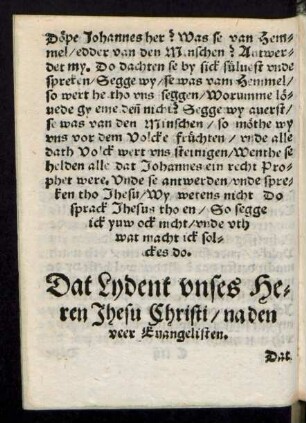 Döpe Johannes her? Was se van Hem-
mel/edder van den Minschen? Antwer-
det my. Do dachten se by sick süluest vnde
spreken/Segge wy/se was vam Hemmel/
so wert he tho vns seggen/Worumme lö-
uede gy eme deñ nicht? Segge wy auerst/
se was van den Minschen/so möthe wy
vns vor dem Volcke früchten/vnde alle
dath Volck wert vns steinigen/Wenthe se
helden alle dat Johannes ein recht Pro-
phet were. Vnde se antwerden/vnde spre-
ken tho Jhesu/Wy wetens nicht Do
sprack Jhesus tho en/So segge
ick yuw ock nicht/vnde vth
wat macht ick sol-
ckes do.
Dat Lydent vnses He-
ren Jhesu Christi/na den
veer Euangelisten.
Dat